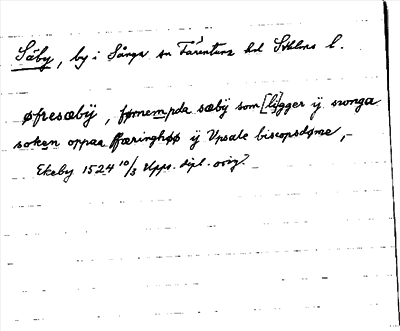 Säby, by i Sånga sn Färentuna hd Sthlms l.
øfresæbÿ, førnempda sæbÿ som [li]gger ÿ swonga
soken oppaa ffæringhøø ÿ Vpsale biscopsdøme,–
Ekeby 1524 10/3 Upps. dipl. orig.